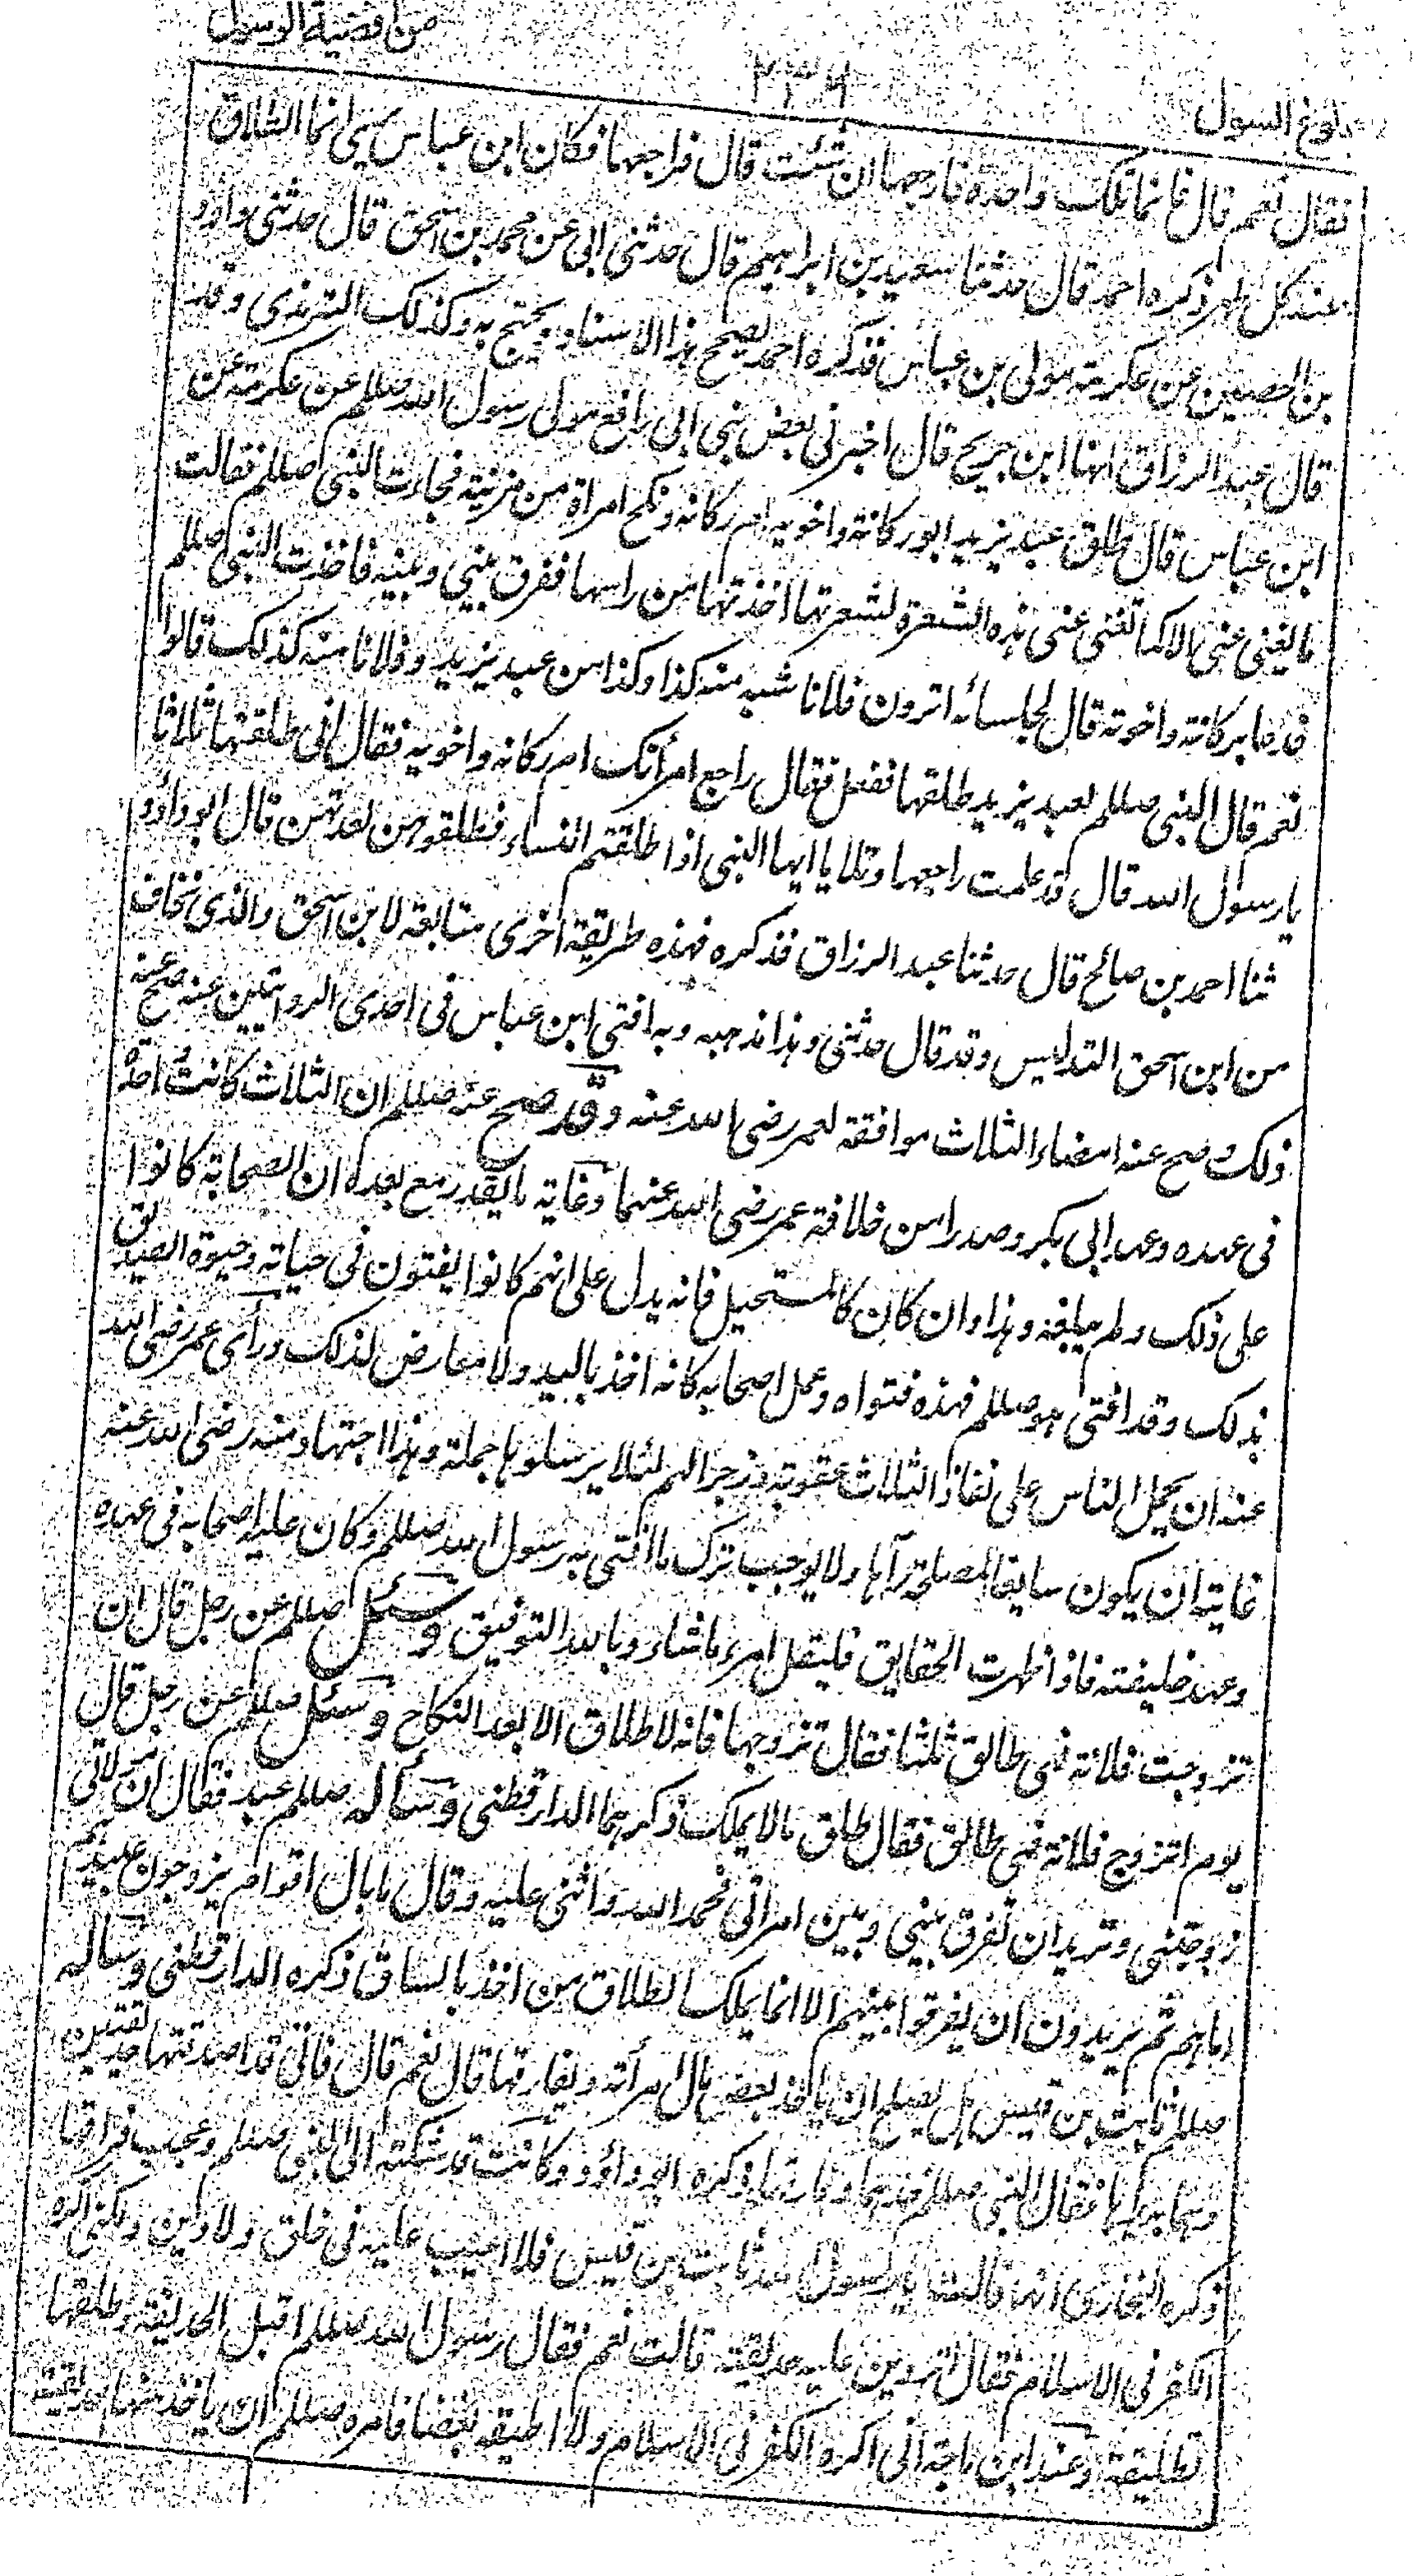 من اقضية الرسول
٢٣٦
بلوغ السول
فقال نعم قال فانما تلك واحدة فارجعها ان شئت قال فراجعها فكان ابن عباس يرى انما الطلاق
عند كل طهر ذكره احمد قال حدثنا سعيد بن ابراهيم قال حدثنى ابى عن محمد بن اسحق قال حدثنى داود
بن الحصين عن عكرمة مولى بن عباس فذكره احمد يصحح هذا الاسناد ويحتج به وكذلك الترمذى وقد
قال عبد الرزاق انبانا ابن جريج قال اخبرنى بعض بنى ابى رافع مولى رسول الله صللم عن عكرمة عن
ابن عباس قال طلق عبد يزيد ابو ركانة واخويه ام ركانة ونكح امراة من مزنية فجاءت النبى صللم فقالت
ما يغنى عنى الا كما تغنى عنى هذه الشعرة لشعرتها اخذتها من راسها ففرق بينى وبينه فاخذت النبى صللم
فدعا بركانة واخوته قال لجلسائه اترون فلانا شبه منه كذا وكذا من عبد يزيد وفلانا منه كذلك قالوا
نعم قال النبى صللم لعبد يزيد طلقها ففعل فقال راجع امرأتك ام ركانه واخويه فقال انى طلقتها ثلاثا
يا رسول الله قال قد علمت راجعها وتلا يا ايها النبى اذا طلقتم النساء فطلقوهن لعدتهن قال ابو داؤد
ثنا احمد بن صالح قال حدثنا عبد الرزاق فذكره فهذه طريقة اخرى متابعة لابن اسحق والذى نخاف
من ابن اسحق التدليس وقد قال حدثنى وهذا مذهبه وبه افتى ابن عباس فى احدى الروايتين عنه صح عنه
ذلك وصح عنه امضاء الثلاث موافقة لعمر رضى الله عنه وقد صح عنه صللم ان الثلاث كانت واحدة
فى عهده وعهد ابى بكر وصدرا من خلافة عمر رضى الله عنهما وغاية ما يقدر مع بعده ان الصحابة كانوا
على ذلك ولم يبلغه وهذا وان كان كالمستحيل فانه يدل على انهم كانوا يفتون فى حياته وحيوة الصديق
بذلك وقد افتى هو صللم فهذه فتواه وعمل اصحابه كانه اخذ باليد ولا معارض لذلك ورأى عمر رضى الله
عنه ان يحمل الناس على نفاذ الثلاث عقوبة وزجرا لهم لئلا يرسلوها جملة وهذا اجتهاد منه رضى الله عنه
غايته ان يكون سايغا لمصلحة رآها ولا يوجب ترك ما افتى به رسول الله صللم وكان عليه اصحابه فى عهده
وعهد خليفته فاذا ظهرت الحقايق فليقل امرء ما شاء وبالله التوفيق وسئل صللم عن رجل قال ان
تزوجت فلانة فهى طالق ثلثا فقال تزوجها فانه لا طلاق الا بعد النكاح وسئل صللم عن رجل قال
يوم اتزوج فلانة فهى طالق فقال طلق ما لا يملك ذكرهما الدارقطنى وسأله صللم عبد فقال ان مولاتى
زوجتنى وتريد ان تفرق بينى وبين امراتى فحمد الله واثنى عليه وقال ما بال اقوام يزوجون عبيدهم
اماءهم ثم يريدون ان يفرقوا بينهم الا انما يملك الطلاق من اخذ بالساق ذكره الدارقطنى وسأله
صللم ثابت بن قيس هل يصلح ان ياخذ بعض مال امرأته ويفارقها قال نعم قال فانى قد اصدقتها حديقتين
وهما بيدها فقال النبى صللم خذهما وفارقها ذكره ابو داؤد وكانت قد شكته الى النبى صللم وتحب فراقها
ذكره البخارى انها قالت يا رسول الله ثابت بن قيس فلا اعيب عليه فى خلق ولا دين ولكنى اكره
الكفر فى الاسلام فقال اتردين عليه حديقته قالت نعم فقال رسول الله صللم اقبل الحديقة وطلقها
تطليقة وعند ابن ماجة انى اكره الكفر فى الاسلام ولا اطيقه بغضا فامره صللم ان ياخذ منها حديقته